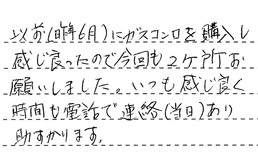 以前(昨年6月)にガスコンロを購入し
感じ良ったので今回も2ヶ所お
願いしました。いつも感じ良く
時間も電話で連絡(当日)あり
助すかります。